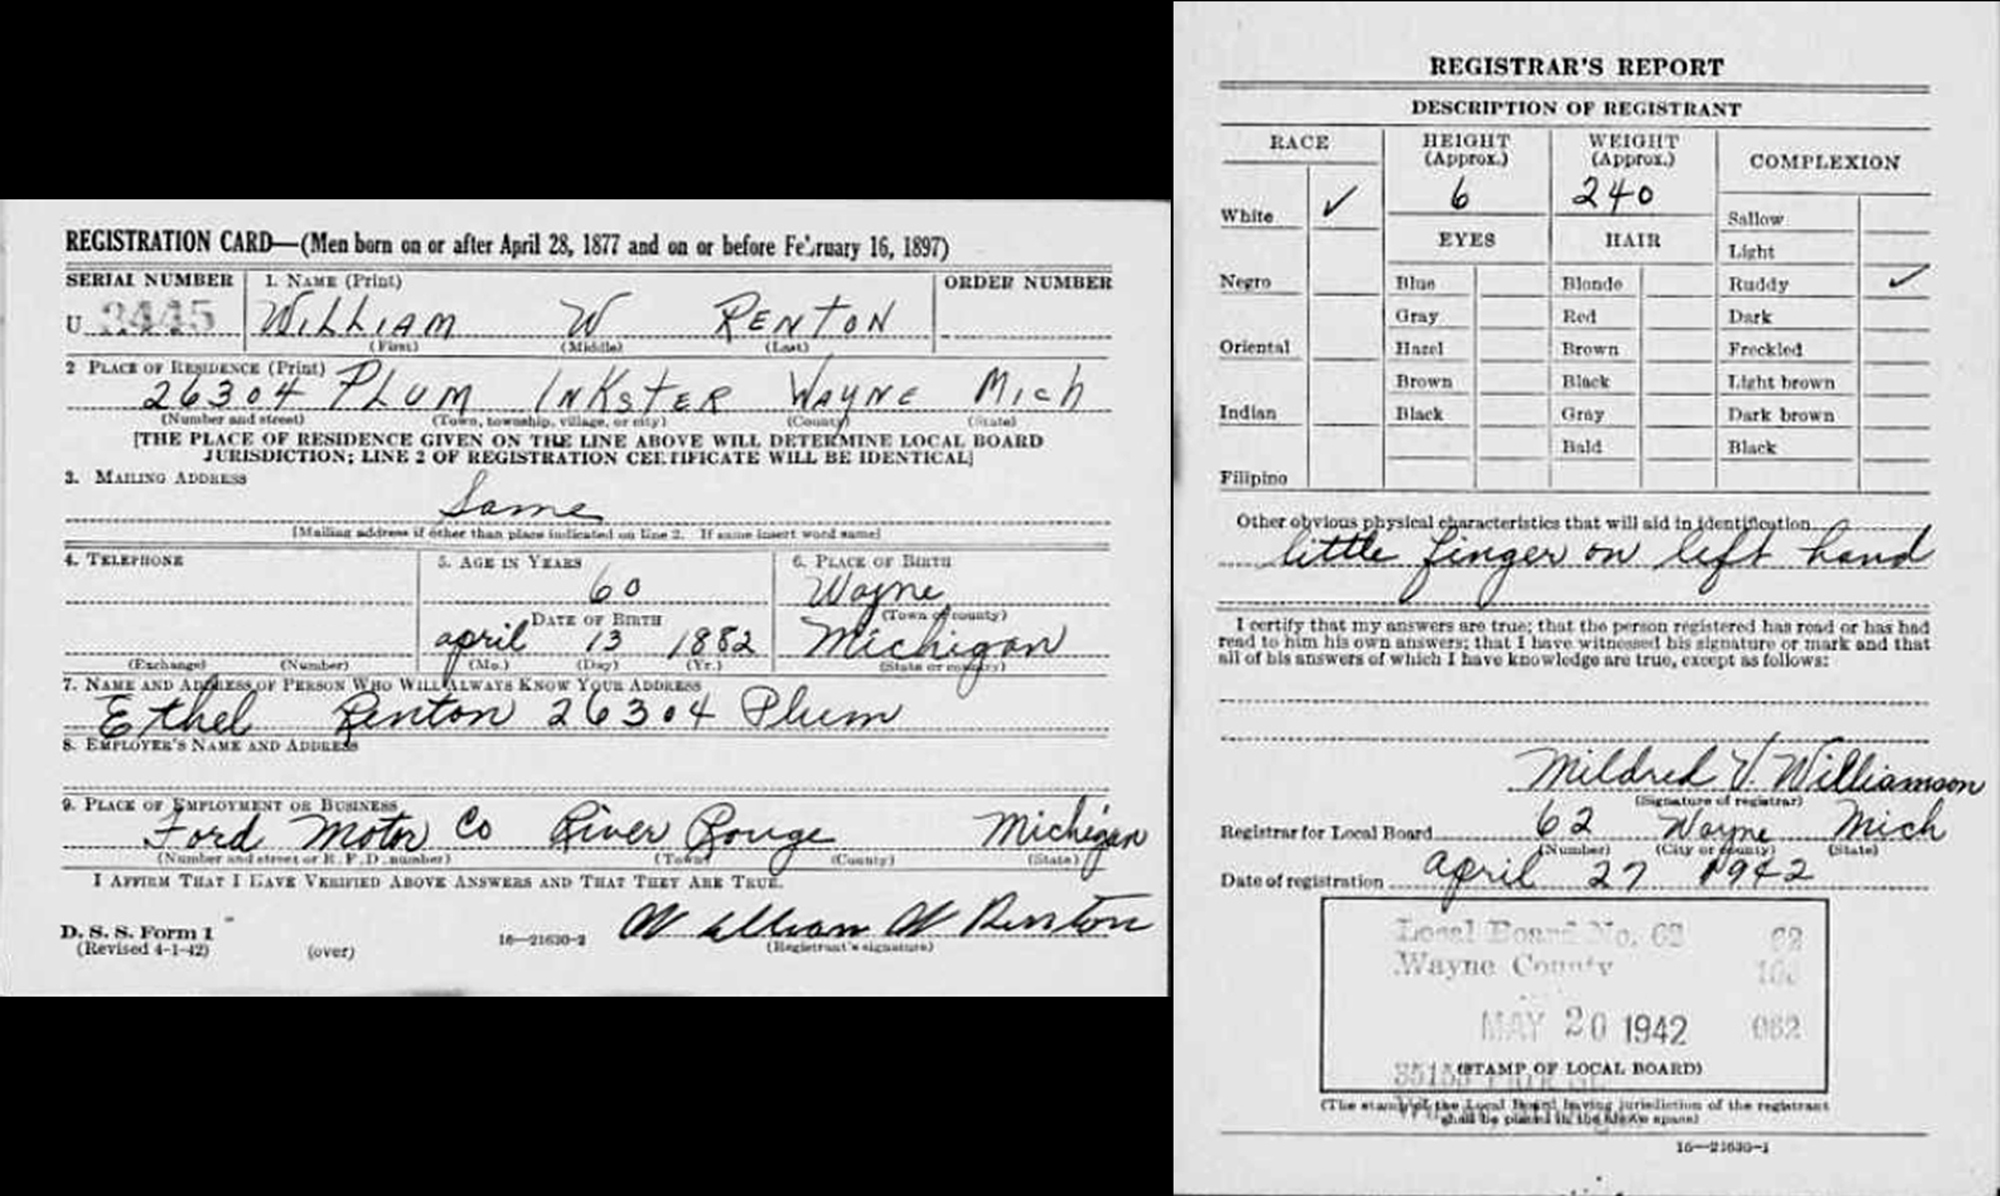 REGISTRATION CARD—(Men born on or after April 28, 1877 and on or before February 16, 1897)
SERIAL NUMBER
1. NAME (Print)
ORDER NUMBER
U 3445
WILLIAM W RENTON
(First) (Middle) (Last)
2 PLACE OF RESIDENCE (Print)
26304 PLUM INKSTER WAYNE MICH
(Number and street) (Town, township, village, or city) (County) (State)
[THE PLACE OF RESIDENCE GIVEN ON THE LINE ABOVE WILL DETERMINE LOCAL BOARD
JURISDICTION; LINE 2 OF REGISTRATION CERTIFICATE WILL BE IDENTICAL]
3. MAILING ADDRESS
Same
[Mailing address if other than place indicated on line 2. If same insert word same]
4. TELEPHONE
5. AGE IN YEARS
6. PLACE OF BIRTH
60
Wayne
(Town or county)
DATE OF BIRTH
april 13 1882
Michigan
(Exchange) (Number)
(Mo.) (Day) (Yr.)
(State or country)
7. NAME AND ADDRESS OF PERSON WHO WILL ALWAYS KNOW YOUR ADDRESS
Ethel Renton 26304 Plum
8. EMPLOYER'S NAME AND ADDRESS
9. PLACE OF EMPLOYMENT OR BUSINESS
Ford Motor Co River Rouge Michigan
(Number and street or R. F. D. number) (Town) (County) (State)
I AFFIRM THAT I HAVE VERIFIED ABOVE ANSWERS AND THAT THEY ARE TRUE.
William W Renton
D. S. S. Form 1
(Revised 4-1-42) (over) 16—21630-2 (Registrant's signature)
REGISTRAR'S REPORT
DESCRIPTION OF REGISTRANT
RACE
HEIGHT
(Approx.)
WEIGHT
(Approx.)
COMPLEXION
6
240
White ✓
Sallow
EYES
HAIR
Light
Negro
Blue
Blonde
Ruddy ✓
Gray
Red
Dark
Oriental
Hazel
Brown
Freckled
Brown
Black
Light brown
Indian
Black
Gray
Dark brown
Bald
Black
Filipino
Other obvious physical characteristics that will aid in identification
little finger on left hand
I certify that my answers are true; that the person registered has read or has had
read to him his own answers; that I have witnessed his signature or mark and that
all of his answers of which I have knowledge are true, except as follows:
Mildred V. Williamson
(Signature of registrar)
Registrar for Local Board 62 Wayne Mich
(Number) (City or county) (State)
Date of registration april 27 1942
Local Board No. 62 62
Wayne County
MAY 20 1942 062
(STAMP OF LOCAL BOARD)
(The stamp of the Local Board having jurisdiction of the registrant
shall be placed in the above space)
16—21630-1